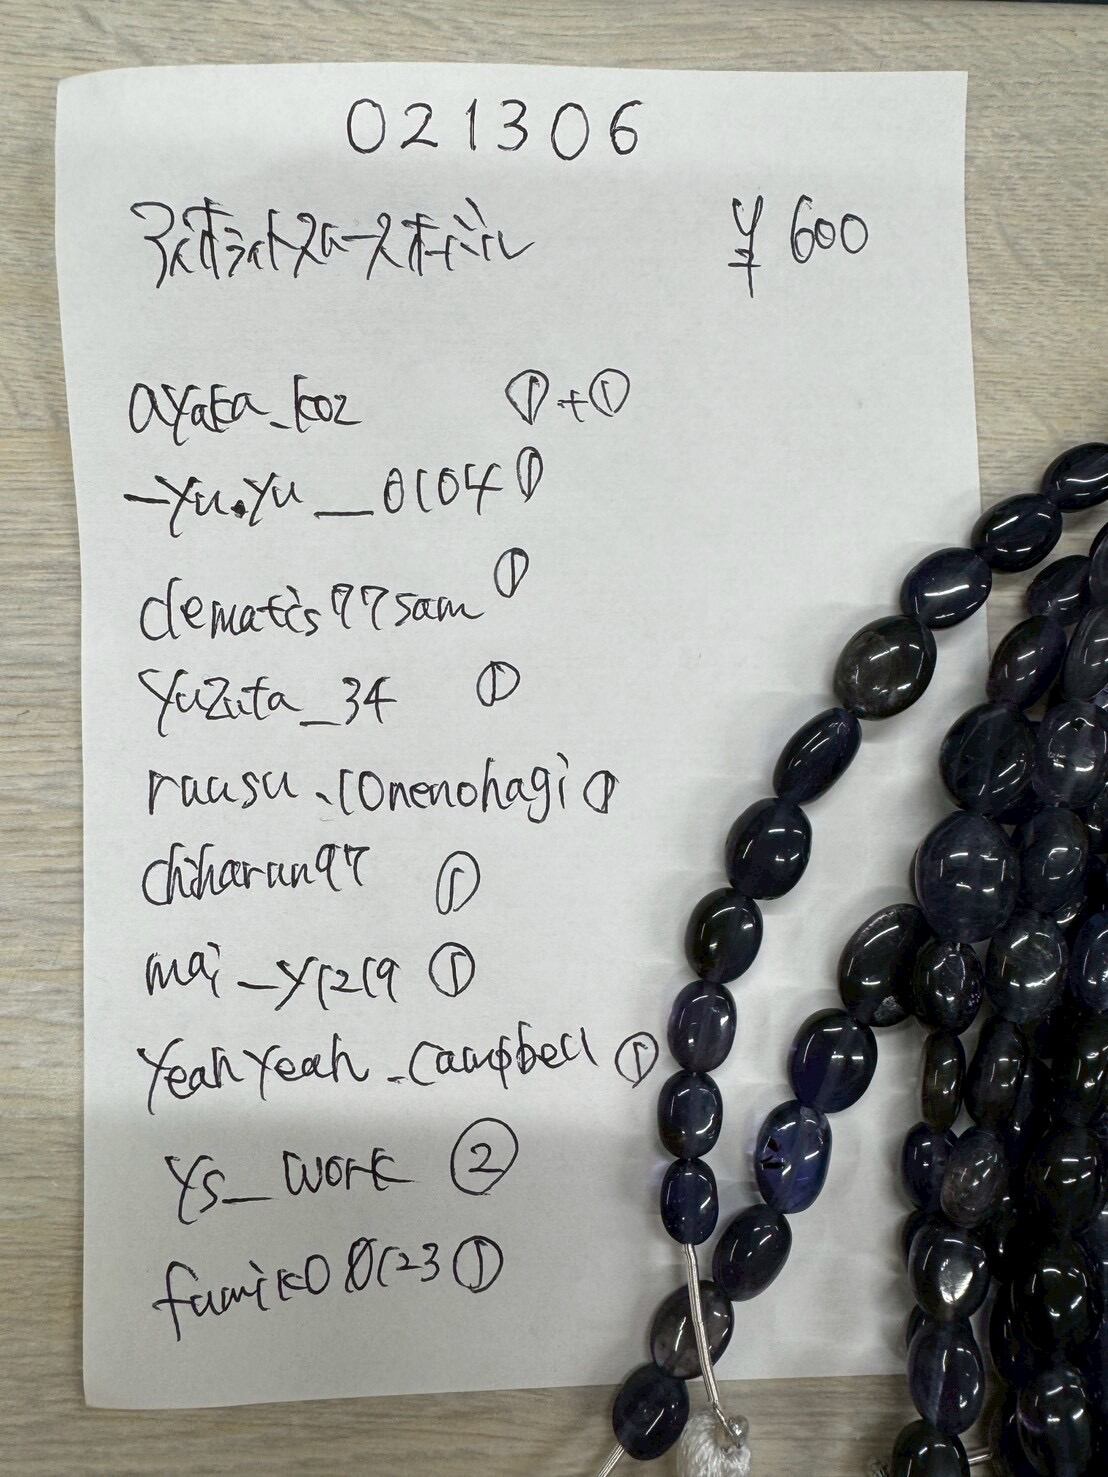 021306
アイオライトスムースオーバル ¥600
ayaka_koz ①+①
-yu.yu__0104 ①
clematis77sam ①
yuzuta_34 ①
raasu_10nenohagi ①
chiharun97 ①
mai_y1219 ①
yeahyeah_campbell ①
ys_work ②
fumiko0123 ①